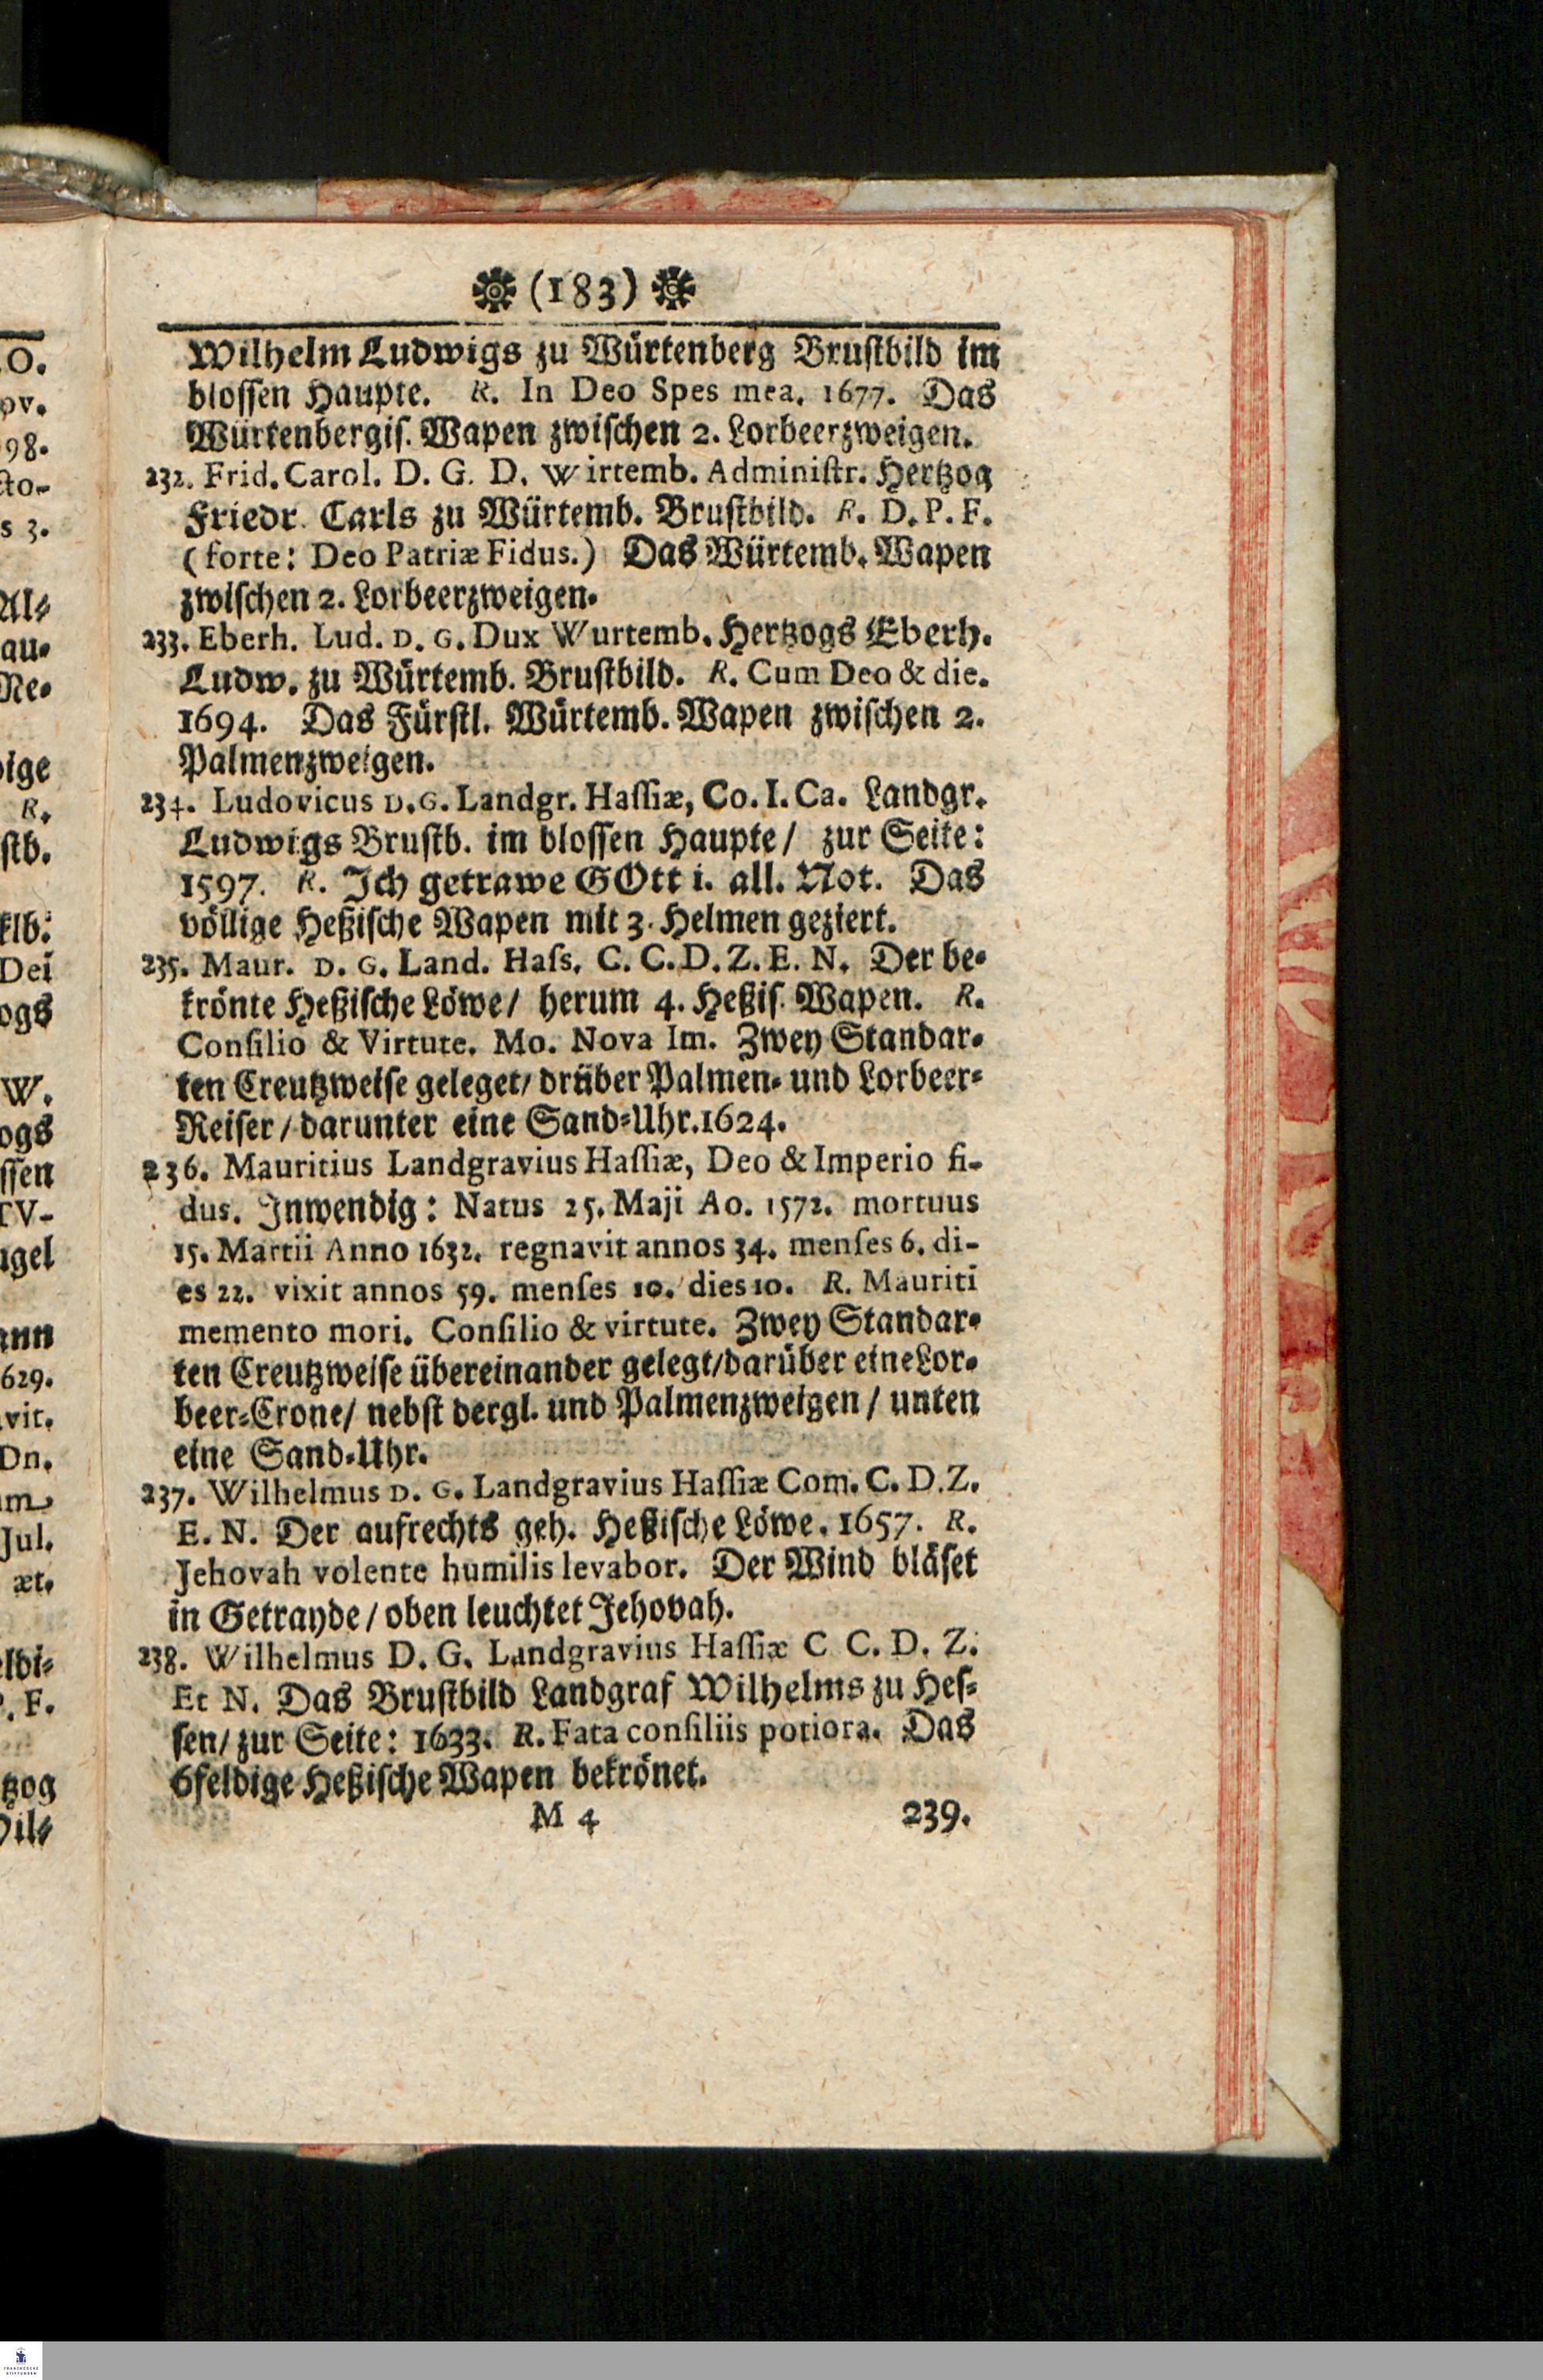 (183)
Wilhelm Ludwigs zu Würtenberg Brustbild im
blossen Haupte. R. In Deo Spes mea. 1677. Das
Würtenbergis. Wapen zwischen 2. Lorbeerzweigen.
232. Frid. Carol. D. G. D. Wirtemb. Administr. Hertzog
Friedr. Carls zu Würtemb. Brustbild. R. D. P. F.
(forte: Deo Patriæ Fidus.) Das Würtemb. Wapen
zwischen 2. Lorbeerzweigen.
233. Eberh. Lud. D. G. Dux Wurtemb. Hertzogs Eberh.
Ludw. zu Würtemb. Brustbild. R. Cum Deo & die.
1694. Das Fürstl. Würtemb. Wapen zwischen 2.
Palmenzweigen.
234. Ludovicus D. G. Landgr. Hassiæ, Co. I. Ca. Landgr.
Ludwigs Brustb. im blossen Haupte/ zur Seite:
1597. R. Ich getrawe GOtt i. all. Not. Das
völlige Heßische Wapen mit 3. Helmen geziert.
235. Maur. D. G. Land. Hass. C. C. D. Z. E. N. Der be-
krönte Heßische Löwe/ herum 4. Heßis. Wapen. R.
Consilio & Virtute. Mo. Nova Im. Zwey Standar-
ten Creutzweise geleget/ drüber Palmen- und Lorbeer-
Reiser/ darunter eine Sand-Uhr. 1624.
236. Mauritius Landgravius Hassiæ, Deo & Imperio fi-
dus. Inwendig: Natus 25. Maji Ao. 1572. mortuus
15. Martii Anno 1632. regnavit annos 34. menses 6. di-
es 22. vixit annos 59. menses 10. dies 10. R. Mauriti
memento mori. Consilio & virtute. Zwey Standar-
ten Creutzweise übereinander gelegt/ darüber eine Lor-
beer-Crone/ nebst dergl. und Palmenzweigen/ unten
eine Sand-Uhr.
237. Wilhelmus D. G. Landgravius Hassiæ Com. C. D. Z.
E. N. Der aufrechts geh. Heßische Löwe. 1657. R.
Jehovah volente humilis levabor. Der Wind bläset
in Getrayde/ oben leuchtet Jehovah.
238. Wilhelmus D. G. Landgravius Hassiæ C C. D. Z.
Et N. Das Brustbild Landgraf Wilhelms zu Hes-
sen/ zur Seite: 1633. R. Fata consiliis potiora. Das
6feldige Heßische Wapen bekrönet.
M 4 239.